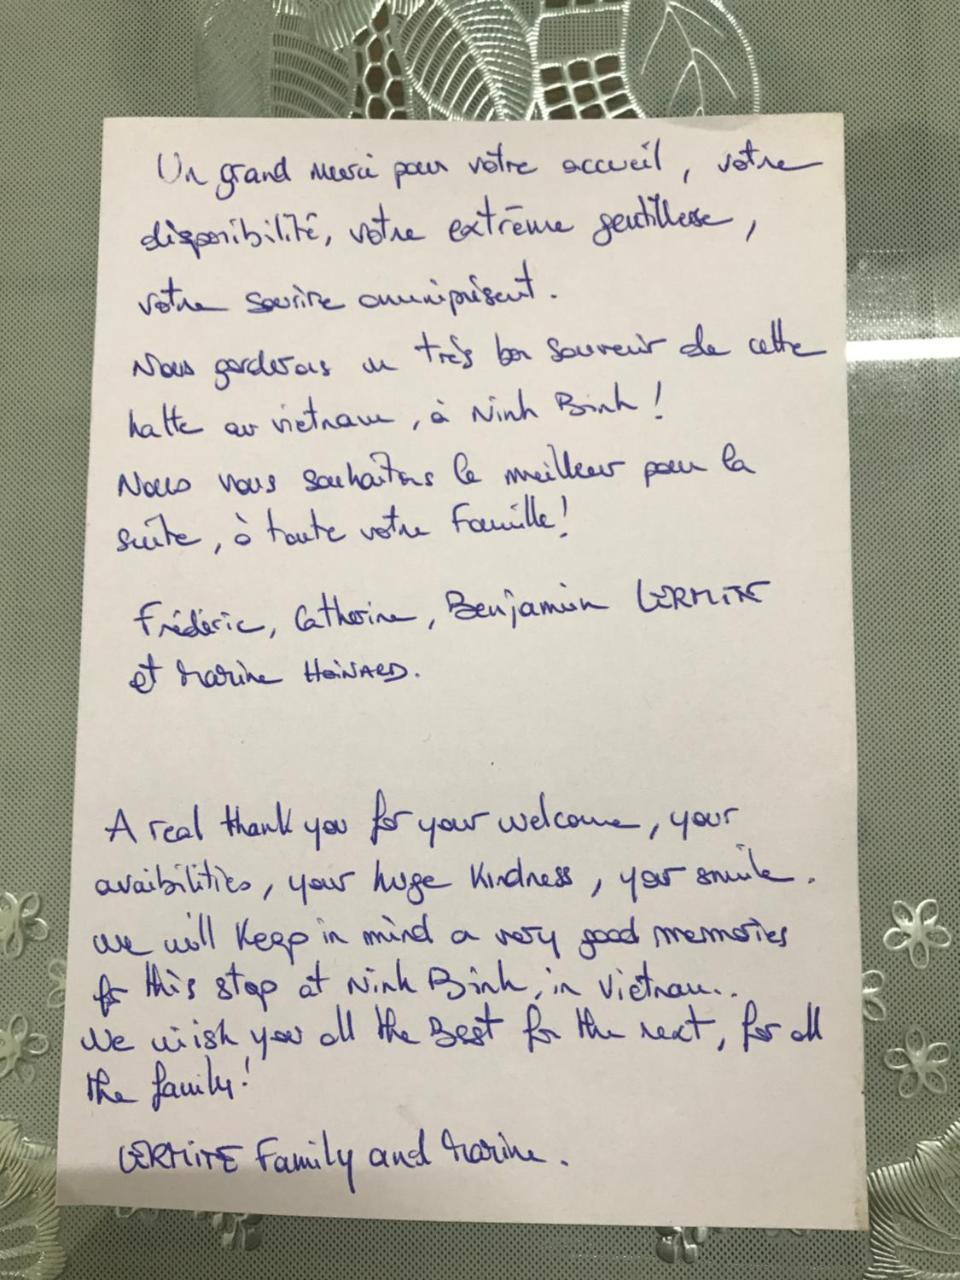 Un grand merci pour votre accueil, votre
disponibilité, votre extrême gentillesse,
votre sourire omniprésent.
Nous garderons un très bon souvenir de cette
halte au vietnam, à Ninh Binh !
Nous vous souhaitons le meilleur pour la
suite, à toute votre Famille !
Frédéric, Catherine, Benjamin LERMITE
et Marine HOINARD.
A real thank you for your welcome, your
avaibilities, your huge kindness, your smile.
We will keep in mind a very good memories
for this stop at Ninh Binh, in Vietnam..
We wish you all the Best for the next, for all
the family !
LERMITE Family and Marine.